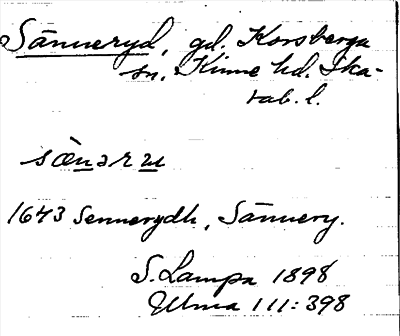 Sänneryd, gd. Korsberga
sn, Kinne hd. Ska-
rab. l.
sænəru
1643 Sennerydh, Sännery.
S. Lampa 1898
Ulma 111: 398